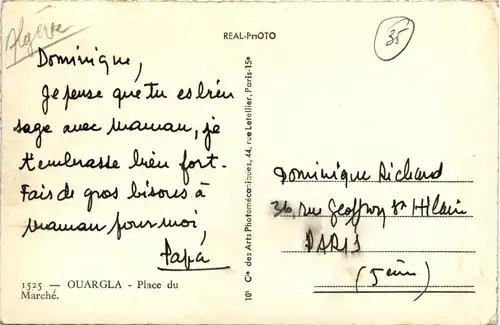 Algérie
REAL-PHOTO
35
Dominique,
Je pense que tu es bien
sage avec maman, je
t'embrasse bien fort.
Fais de gros bisous à
maman pour moi,
Papa
1525 — OUARGLA - Place du
Marché.
10 Cie des Arts Photomécaniques, 44, rue Letellier, Paris-15e
Dominique Richard
36 rue Geoffroy St Hilaire
PARIS
(5ème)